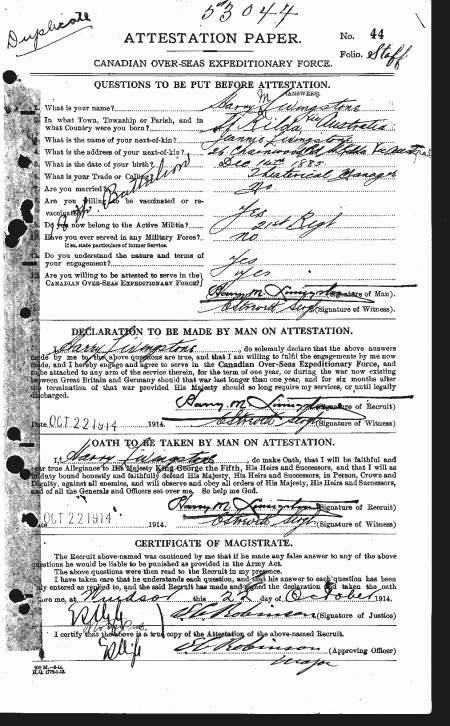 53044
Duplicate
ATTESTATION PAPER.
No. 44
Folio. Staff
CANADIAN OVER-SEAS EXPEDITIONARY FORCE.
QUESTIONS TO BE PUT BEFORE ATTESTATION.
(ANSWERS)
What is your name? Harry M Livingstone
In what Town, Township or Parish, and in
what Country were you born? St Kilda Vic Australia
What is the name of your next-of-kin? Jeannie Livingstone
What is the address of your next-of-kin? 26 St Kilda
What is the date of your birth? Dec 14th 1882
What is your Trade or Calling? Theatrical Manager
Are you married? No
Are you willing to be vaccinated or re-
vaccinated? Yes
Battalion
Do you now belong to the Active Militia? 21st Regt
Have you ever served in any Military Force? no
If so, state particulars of former Service.
Do you understand the nature and terms of
your engagement? Yes
Are you willing to be attested to serve in the
CANADIAN OVER-SEAS EXPEDITIONARY FORCE? Yes
Harry M. Livingstone (Signature of Man).
(Signature of Witness).
DECLARATION TO BE MADE BY MAN ON ATTESTATION.
I, Harry Livingstone, do solemnly declare that the above answers
made by me to the above questions are true, and that I am willing to fulfil the engagements by me now
made, and I hereby engage and agree to serve in the Canadian Over-Seas Expeditionary Force, and
to be attached to any arm of the service therein, for the term of one year, or during the war now existing
between Great Britain and Germany should that war last longer than one year, and for six months after
the termination of that war provided His Majesty should so long require my services, or until legally
discharged.
Harry M. Livingstone (Signature of Recruit)
Date OCT 22 1914 1914. (Signature of Witness)
OATH TO BE TAKEN BY MAN ON ATTESTATION.
I, Harry Livingstone, do make Oath, that I will be faithful and
bear true Allegiance to His Majesty King George the Fifth, His Heirs and Successors, and that I will as
in duty bound honestly and faithfully defend His Majesty, His Heirs and Successors, in Person, Crown and
Dignity, against all enemies, and will observe and obey all orders of His Majesty, His Heirs and Successors,
and of all the Generals and Officers set over me. So help me God.
Harry M. Livingstone (Signature of Recruit)
OCT 22 1914 1914. (Signature of Witness)
CERTIFICATE OF MAGISTRATE.
The Recruit above-named was cautioned by me that if he made any false answer to any of the above
questions he would be liable to be punished as provided in the Army Act.
The above questions were then read to the Recruit in my presence.
I have taken care that he understands each question, and that his answer to each question has been
duly entered as replied to, and the said Recruit has made and signed the declaration and taken the oath
before me, at Windsor this 22 day of October 1914.
E. Robinson (Signature of Justice)
I certify that the above is a true copy of the Attestation of the above-named Recruit.
E Robinson (Approving Officer)
Major
200 M.—8-14.
H.Q. 1772-4-13.